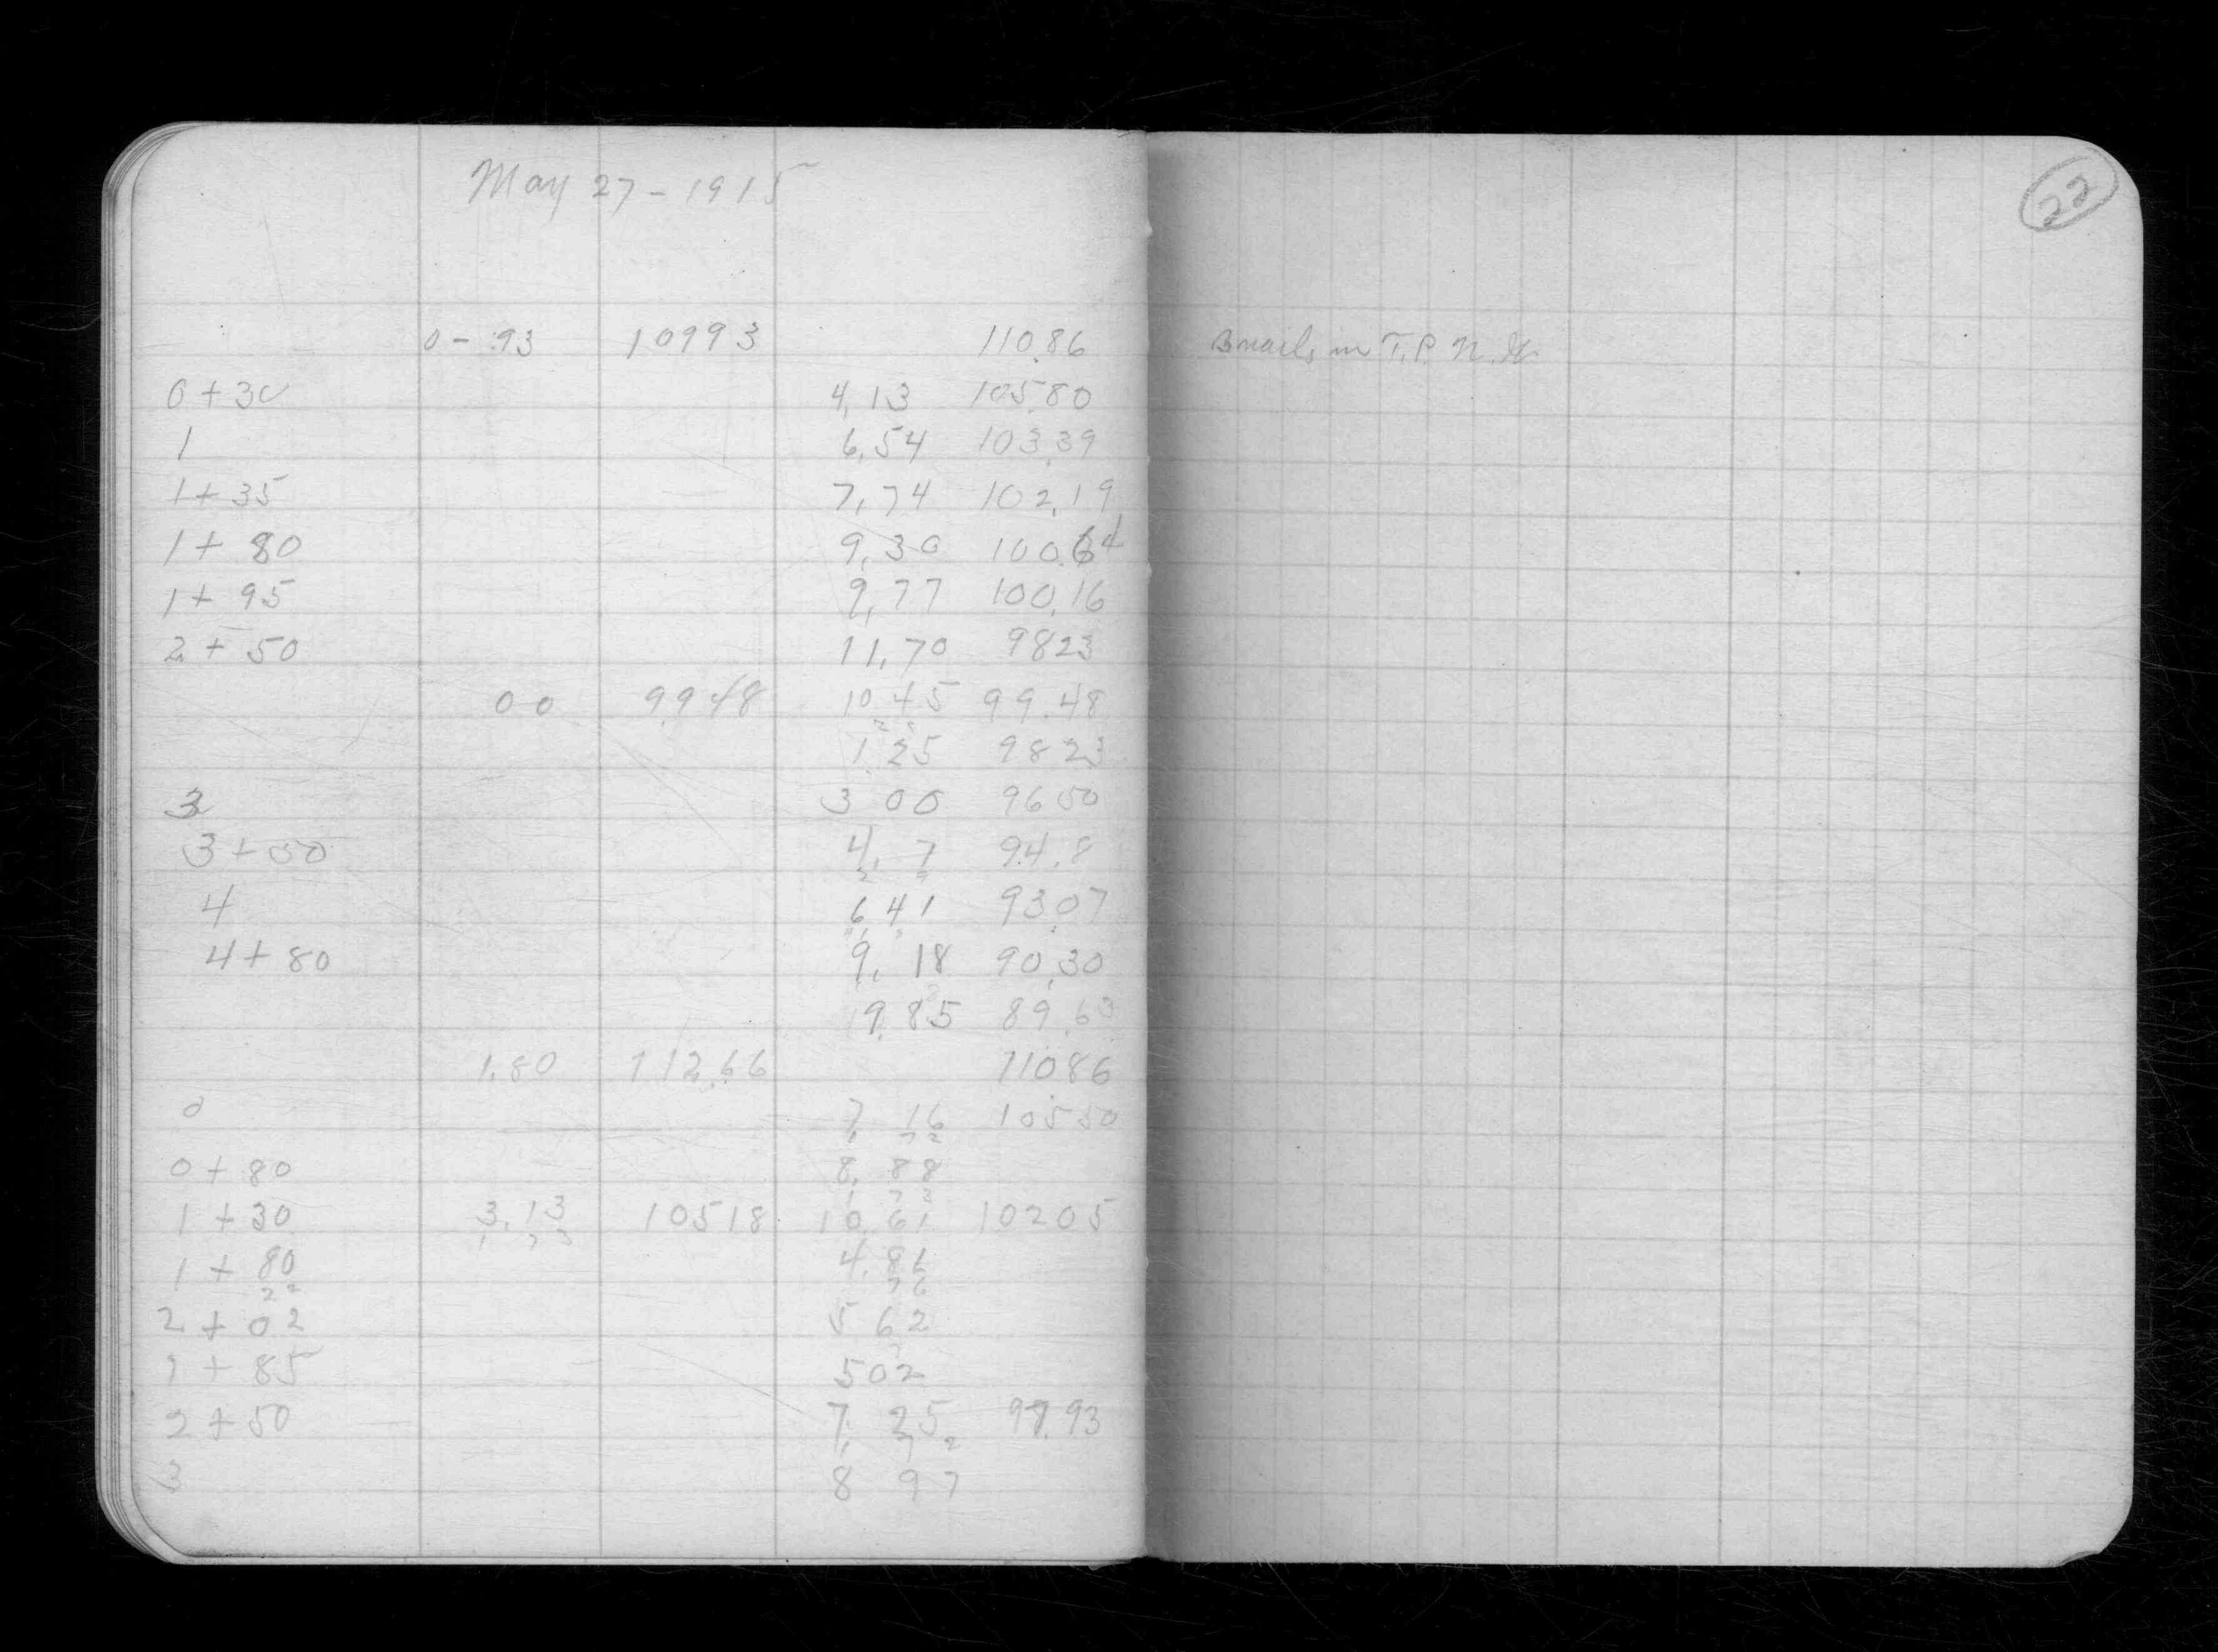 May 27 - 1915
22
0 - .93 10993 110.86 3 nails in T.P. N.
0+30 4,13 105.80
1 6,54 103,39
1+35 7,74 102,19
1+80 9,30 100.64
1+95 9,77 100,16
2+50 11,70 9823
00 99.48 10 45 99.48
1.25 9823
3 3 00 96 50
3+50 4, 7 94.8
4 6 41 93.07
4+80 9, 18 90,30
9.85 89.63
1.80 112.66 11086
0 7, 16 10550
1 72
0+80 8, 88
1 7 3
1+30 3,13 10518 10.61 10205
1+80 4.86
22 76
2+02 5 62
1+85 502
2+50 7. 25 97.93
1 7 2
3 8 97